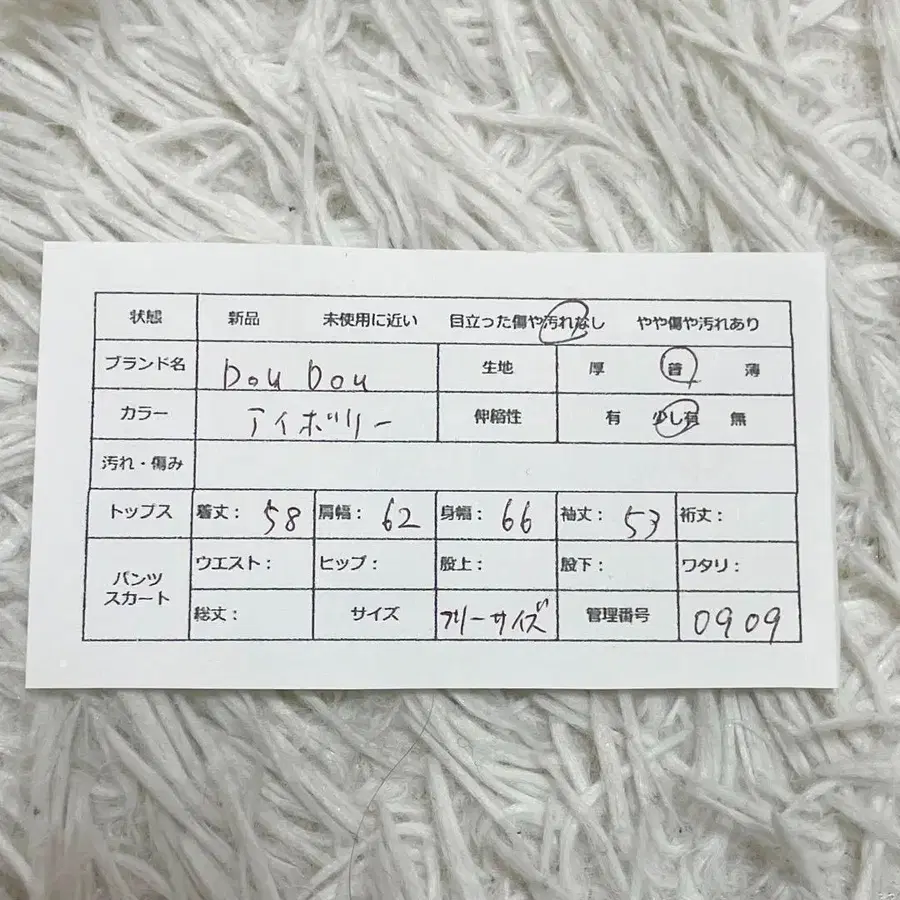 状態 新品 未使用に近い 目立った傷や汚れなし やや傷や汚れあり
ブランド名 Dou Dou 生地 厚 普 薄
カラー アイボリー 伸縮性 有 少し有 無
汚れ・傷み
トップス 着丈: 58 肩幅: 62 身幅: 66 袖丈: 53 裄丈:
パンツ スカート ウエスト: ヒップ: 股上: 股下: ワタリ:
総丈: サイズ フリーサイズ 管理番号 0909